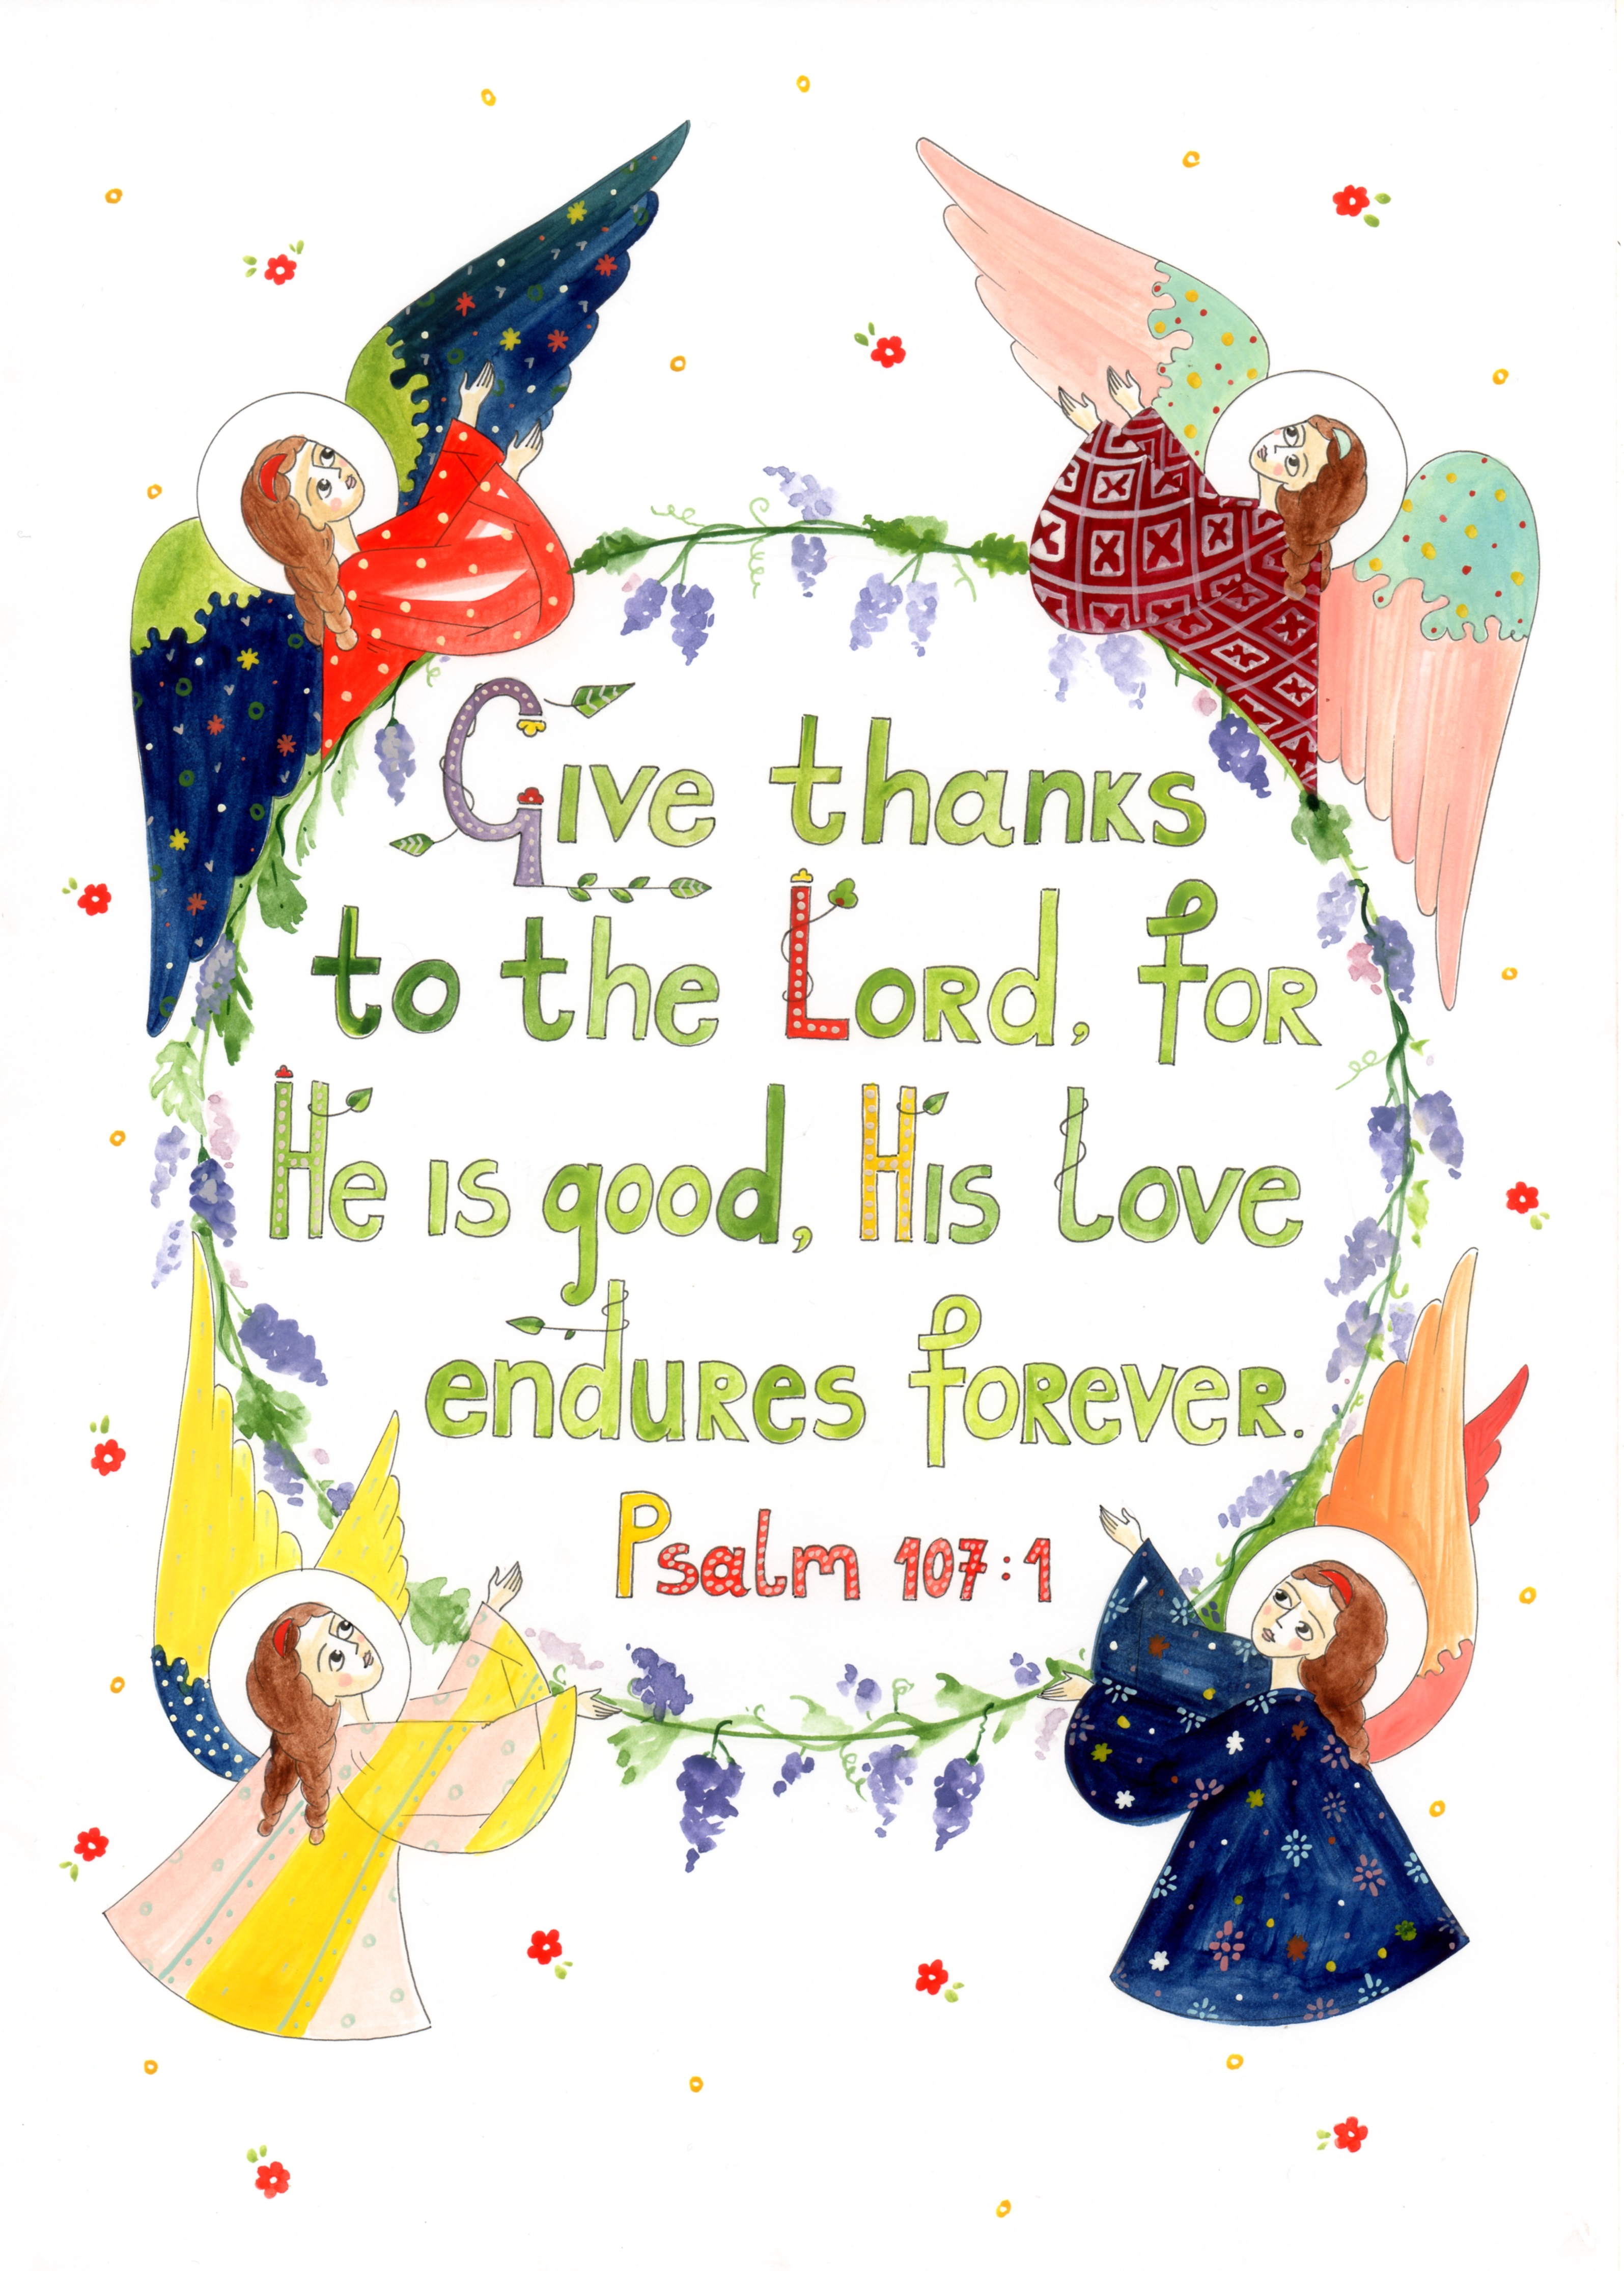 Give thanks
to the Lord, for
He is good, His love
endures forever.
Psalm 107:1